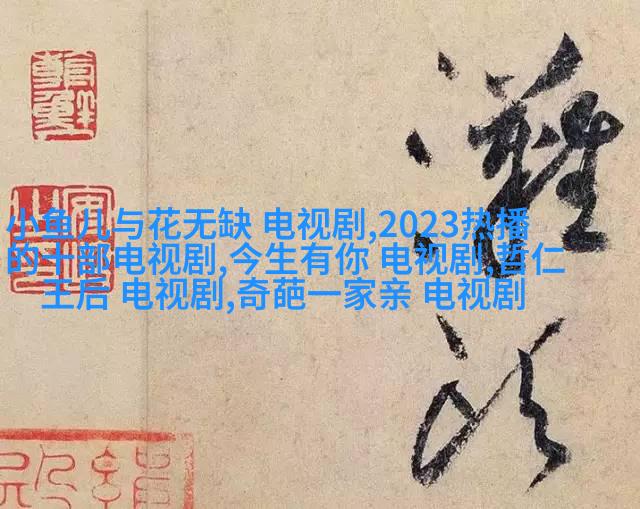 小鱼儿与花无缺 电视剧,2023热播
的十部电视剧,今生有你 电视剧,哲仁
王后 电视剧,奇葩一家亲 电视剧